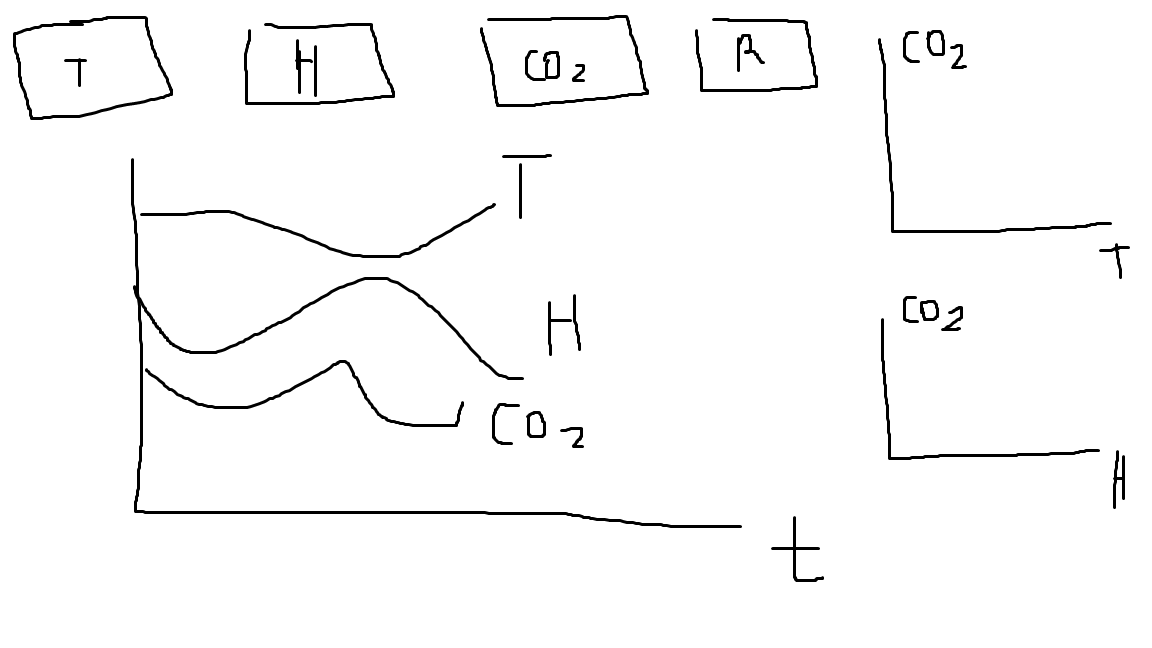 T H CO₂ R
CO₂
T
T
CO₂
H
CO₂
H
t